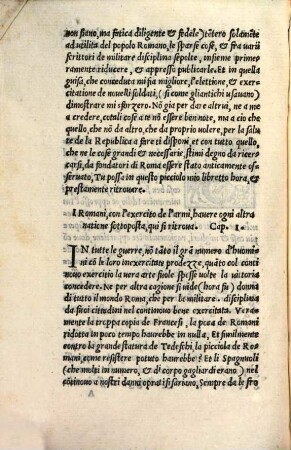 non siano, ma fatica diligente & fedele) tētero solamēte
ad utilita del popolo Romano, le sparse cose, & fra uarii
scrittori de militare disciplina sepolte, insieme prime-
ramente riducere, & appresso publicarle. Et in quella
guisa, che conceduta mi fia migliore, l'elettione, & exer-
citatione de nouelli soldati, (si come gli antichi usauano)
dimostrare mi sforzero. Nō gia per dare altrui, ne a me
a credere, cotali cose a te nō essere ben note, ma a cio che
quello, che nō da altro, che da proprio uolere, per la salu
te de la Republica a fare ti disponi, et con tutto, quello,
che ne le cose grandi & necessarie, stimi degno da ricer-
carsi, da fondatori di Roma essere stato anticamente os-
seruato, Tu possa in questo picciolo mio libretto hora, &
prestamente ritrouare.
I Romani, con l'exercito de l'armi, hauere ogni altra
natione sottoposta, qui si ritroua. Cap. I.
IN tutte le guerre, nō tāto il grā numero d'huomi
ni cō le loro inexercitate prodezze, quāto col conti
nouo exercitio la uera arte suole spesse uolte la uittoria
concedere. Ne per altra cagione si uide (hora su) donna
di tutto il mondo Roma, che per le militare disciplina
da suoi cittadini nel continouo bene exercitata. Vera-
mente la troppa copia de Francesi, la poca de Romani
ridotta in poco tempo haurebbe in nulla, Et similmente
contro la grande statura de Tedeschi, la picciola de Ro-
mani, come resistere potuto haurebbe? Et li Spagnuoli
(che molti in numero, & di corpo gagliardi erano) nel
cōtinouo a nostri danni oprati si sariano, Sempre da le fro
A